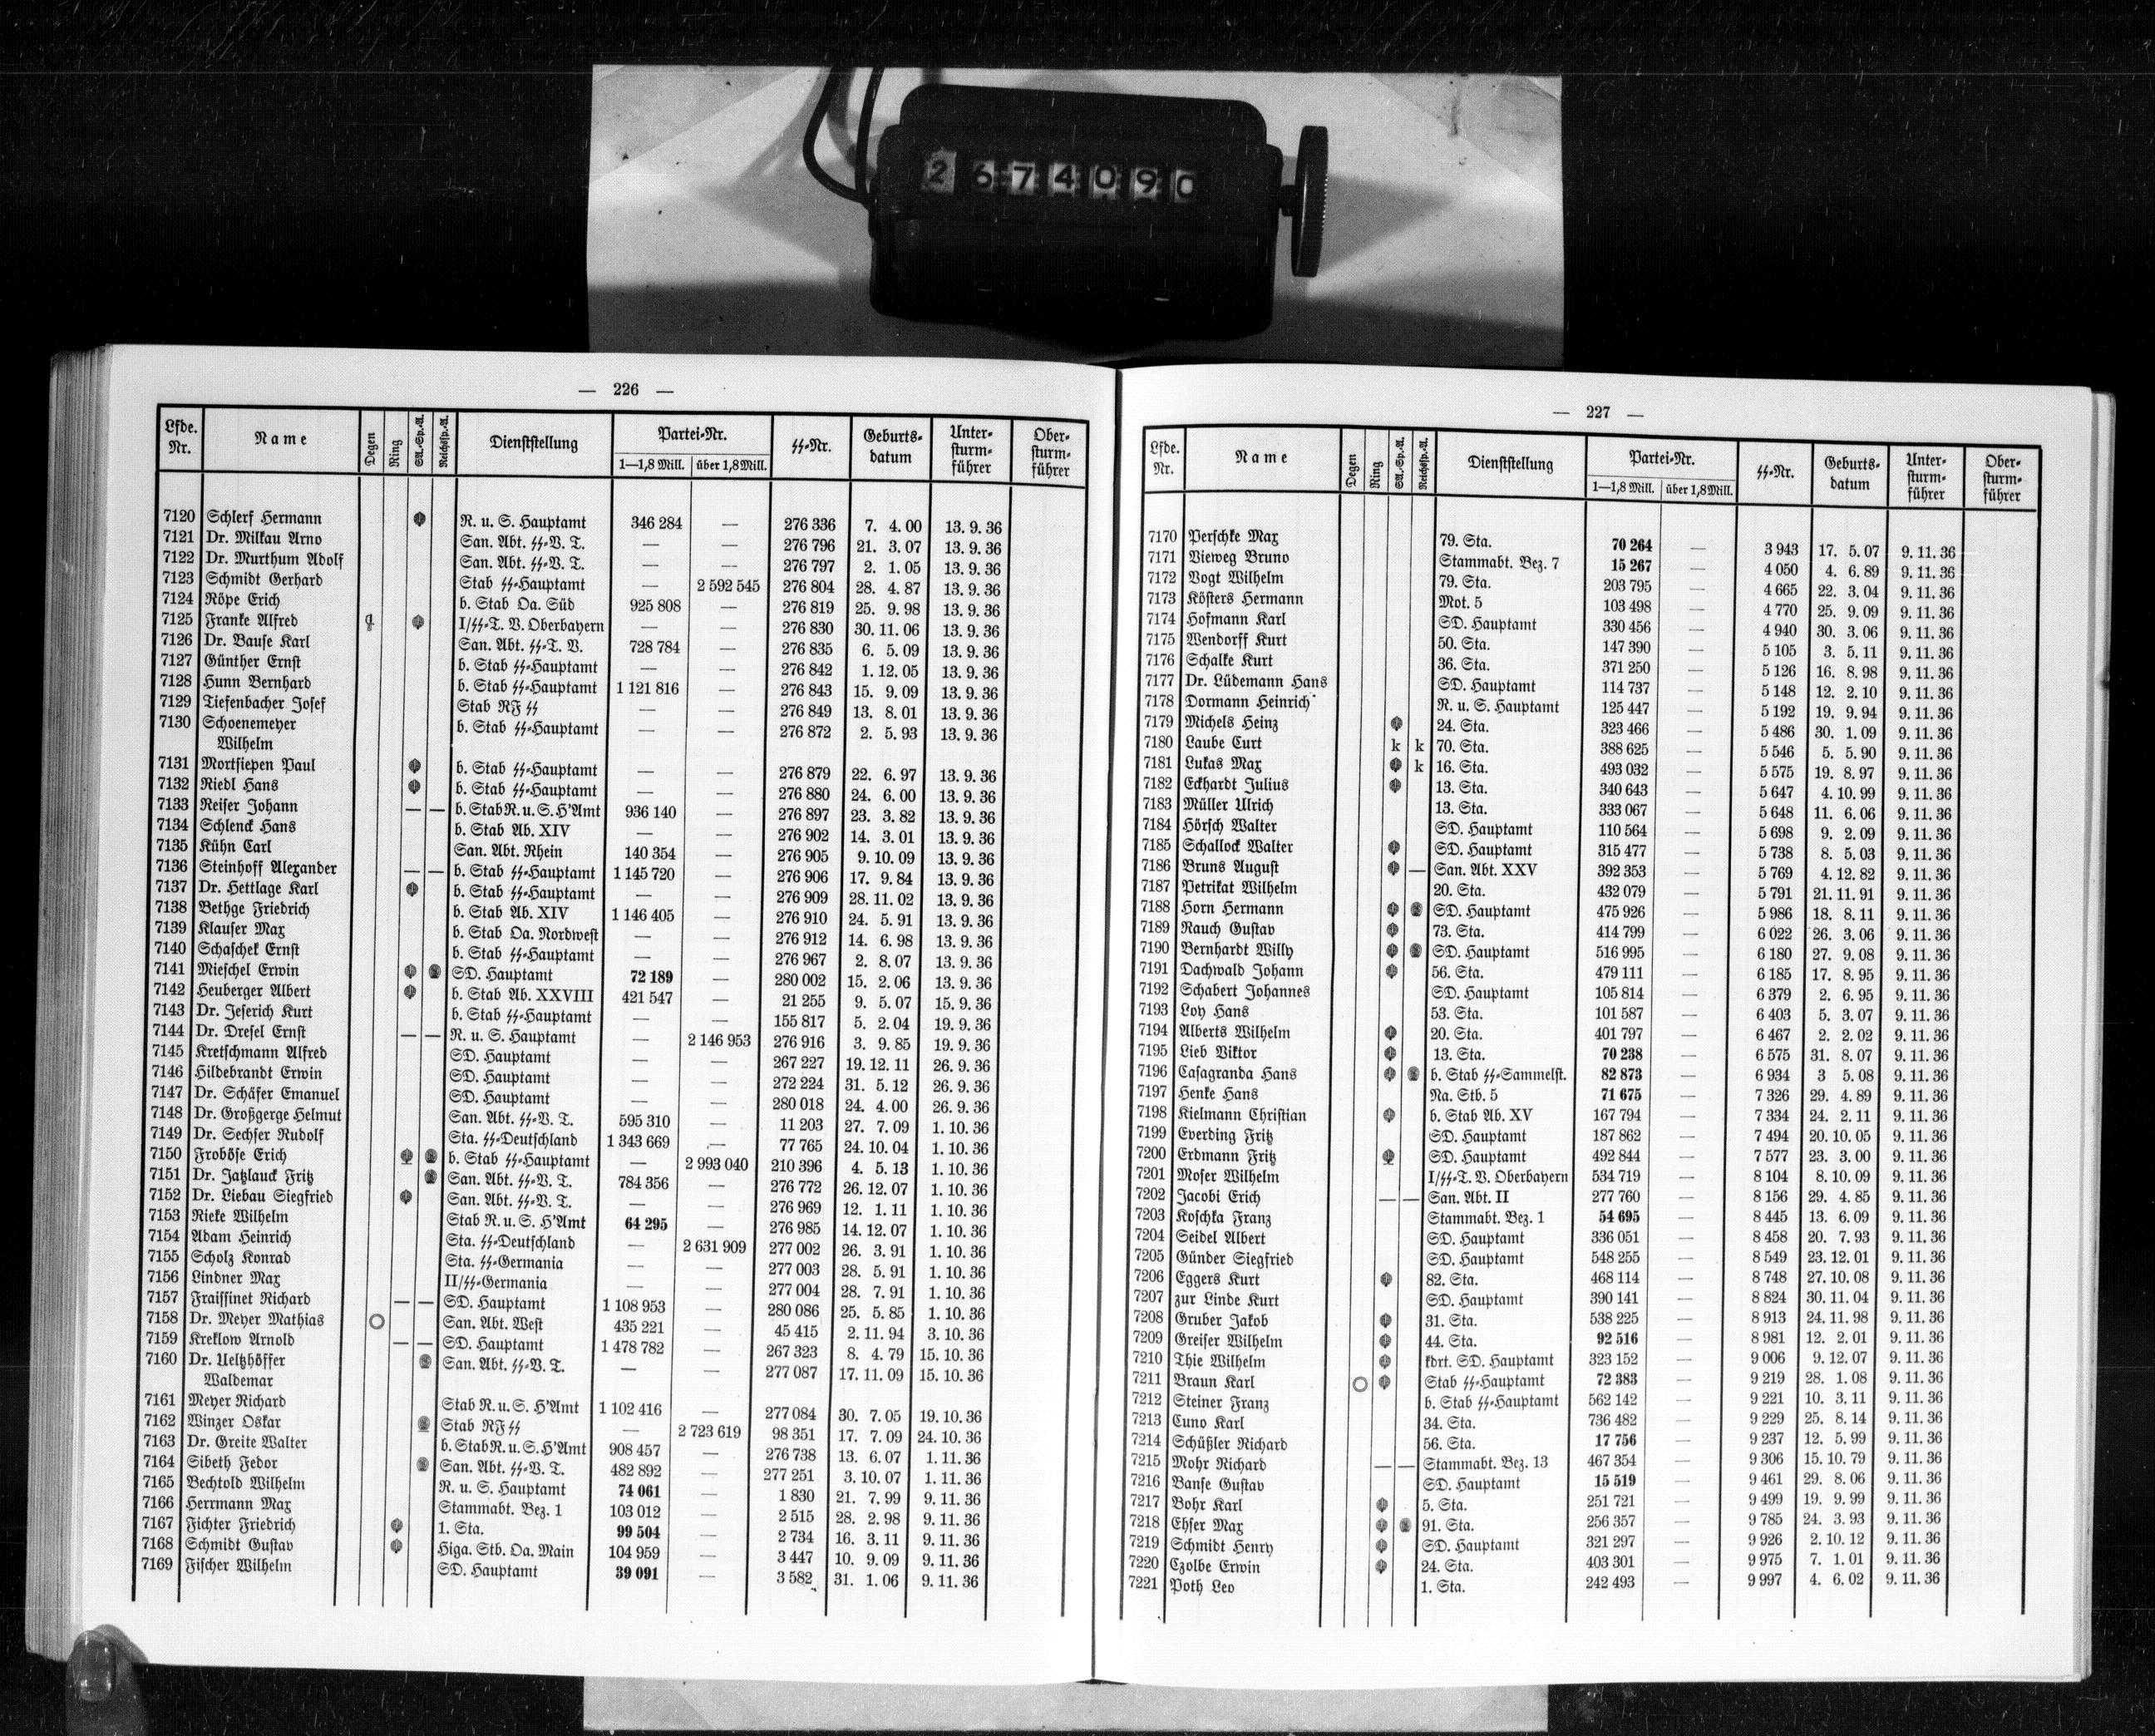 2674090
— 226 —
Lfde. Nr. Name Degen Ring SA.-Sp.-A. Reichssp.-A. Dienststellung Partei-Nr. 1—1,8 Mill. über 1,8 Mill. SS-Nr. Geburtsdatum Unter-sturm-führer Ober-sturm-führer
7120 Schlerf Hermann R. u. S. Hauptamt 346 284 — 276 336 7. 4. 00 13. 9. 36
7121 Dr. Milkau Arno San. Abt. SS-V. T. — — 276 796 21. 3. 07 13. 9. 36
7122 Dr. Murthum Adolf San. Abt. SS-V. T. — — 276 797 2. 1. 05 13. 9. 36
7123 Schmidt Gerhard Stab SS-Hauptamt — 2 592 545 276 804 28. 4. 87 13. 9. 36
7124 Röpe Erich b. Stab Oa. Süd 925 808 — 276 819 25. 9. 98 13. 9. 36
7125 Franke Alfred I/SS-T. V. Oberbayern — — 276 830 30. 11. 06 13. 9. 36
7126 Dr. Bause Karl San. Abt. SS-T. V. 728 784 — 276 835 6. 5. 09 13. 9. 36
7127 Günther Ernst b. Stab SS-Hauptamt — — 276 842 1. 12. 05 13. 9. 36
7128 Hunn Bernhard b. Stab SS-Hauptamt 1 121 816 — 276 843 15. 9. 09 13. 9. 36
7129 Tiefenbacher Josef Stab RFSS — — 276 849 13. 8. 01 13. 9. 36
7130 Schoenemeyer b. Stab SS-Hauptamt — — 276 872 2. 5. 93 13. 9. 36
Wilhelm
7131 Mortsiepen Paul b. Stab SS-Hauptamt — — 276 879 22. 6. 97 13. 9. 36
7132 Riedl Hans b. Stab SS-Hauptamt — — 276 880 24. 6. 00 13. 9. 36
7133 Reiser Johann — — b. Stab R. u. S. H'Amt 936 140 — 276 897 23. 3. 82 13. 9. 36
7134 Schlenck Hans b. Stab Ab. XIV — — 276 902 14. 3. 01 13. 9. 36
7135 Kühn Carl San. Abt. Rhein 140 354 — 276 905 9. 10. 09 13. 9. 36
7136 Steinhoff Alexander — — b. Stab SS-Hauptamt 1 145 720 — 276 906 17. 9. 84 13. 9. 36
7137 Dr. Hettlage Karl b. Stab SS-Hauptamt — — 276 909 28. 11. 02 13. 9. 36
7138 Bethge Friedrich b. Stab Ab. XIV 1 146 405 — 276 910 24. 5. 91 13. 9. 36
7139 Klauser Max b. Stab Oa. Nordwest — — 276 912 14. 6. 98 13. 9. 36
7140 Schaschek Ernst b. Stab SS-Hauptamt — — 276 967 2. 8. 07 13. 9. 36
7141 Mieschel Erwin SD. Hauptamt 72 189 — 280 002 15. 2. 06 13. 9. 36
7142 Heuberger Albert b. Stab Ab. XXVIII 421 547 — 21 255 9. 5. 07 15. 9. 36
7143 Dr. Jeserich Kurt b. Stab SS-Hauptamt — — 155 817 5. 2. 04 19. 9. 36
7144 Dr. Dresel Ernst — — R. u. S. Hauptamt — 2 146 953 276 916 3. 9. 85 19. 9. 36
7145 Kretschmann Alfred SD. Hauptamt — — 267 227 19. 12. 11 26. 9. 36
7146 Hildebrandt Erwin SD. Hauptamt — — 272 224 31. 5. 12 26. 9. 36
7147 Dr. Schäfer Emanuel SD. Hauptamt — — 280 018 24. 4. 00 26. 9. 36
7148 Dr. Großgerge Helmut San. Abt. SS-V. T. 595 310 — 11 203 27. 7. 09 1. 10. 36
7149 Dr. Sechser Rudolf Sta. SS-Deutschland 1 343 669 — 77 765 24. 10. 04 1. 10. 36
7150 Froböse Erich b. Stab SS-Hauptamt — 2 993 040 210 396 4. 5. 13 1. 10. 36
7151 Dr. Jatzlauck Fritz San. Abt. SS-V. T. 784 356 — 276 772 26. 12. 07 1. 10. 36
7152 Dr. Liebau Siegfried San. Abt. SS-V. T. — — 276 969 12. 1. 11 1. 10. 36
7153 Rieke Wilhelm Stab R. u. S. H'Amt 64 295 — 276 985 14. 12. 07 1. 10. 36
7154 Adam Heinrich Sta. SS-Deutschland — 2 631 909 277 002 26. 3. 91 1. 10. 36
7155 Scholz Konrad Sta. SS-Germania — — 277 003 28. 5. 91 1. 10. 36
7156 Lindner Max II/SS-Germania — — 277 004 28. 7. 91 1. 10. 36
7157 Fraissinet Richard — — SD. Hauptamt 1 108 953 — 280 086 25. 5. 85 1. 10. 36
7158 Dr. Meyer Mathias San. Abt. West 435 221 — 45 415 2. 11. 94 3. 10. 36
7159 Kreklow Arnold — — SD. Hauptamt 1 478 782 — 267 323 8. 4. 79 15. 10. 36
7160 Dr. Ueltzhöffer San. Abt. SS-V. T. — — 277 087 17. 11. 09 15. 10. 36
Waldemar
7161 Meyer Richard Stab R. u. S. H'Amt 1 102 416 — 277 084 30. 7. 05 19. 10. 36
7162 Winzer Oskar Stab RFSS — 2 723 619 98 351 17. 7. 09 24. 10. 36
7163 Dr. Greite Walter b. Stab R. u. S. H'Amt 908 457 — 276 738 13. 6. 07 1. 11. 36
7164 Sibeth Fedor San. Abt. SS-V. T. 482 892 — 277 251 3. 10. 07 1. 11. 36
7165 Bechtold Wilhelm R. u. S. Hauptamt 74 061 — 1 830 21. 7. 99 9. 11. 36
7166 Herrmann Max Stammabt. Bez. 1 103 012 — 2 515 28. 2. 98 9. 11. 36
7167 Fichter Friedrich 1. Sta. 99 504 — 2 734 16. 3. 11 9. 11. 36
7168 Schmidt Gustav Higa. Stb. Oa. Main 104 959 — 3 447 10. 9. 09 9. 11. 36
7169 Fischer Wilhelm SD. Hauptamt 39 091 — 3 582 31. 1. 06 9. 11. 36
— 227 —
Lfde. Nr. Name Degen Ring SA.-Sp.-A. Reichssp.-A. Dienststellung Partei-Nr. 1—1,8 Mill. über 1,8 Mill. SS-Nr. Geburtsdatum Unter-sturm-führer Ober-sturm-führer
7170 Perschke Max 79. Sta. 70 264 — 3 943 17. 5. 07 9. 11. 36
7171 Vieweg Bruno Stammabt. Bez. 7 15 267 — 4 050 4. 6. 89 9. 11. 36
7172 Vogt Wilhelm 79. Sta. 203 795 — 4 665 22. 3. 04 9. 11. 36
7173 Kösters Hermann Mot. 5 103 498 — 4 770 25. 9. 09 9. 11. 36
7174 Hofmann Karl SD. Hauptamt 330 456 — 4 940 30. 3. 06 9. 11. 36
7175 Wendorff Kurt 50. Sta. 147 390 — 5 105 3. 5. 11 9. 11. 36
7176 Schalke Kurt 36. Sta. 371 250 — 5 126 16. 8. 98 9. 11. 36
7177 Dr. Lüdemann Hans SD. Hauptamt 114 737 — 5 148 12. 2. 10 9. 11. 36
7178 Dormann Heinrich R. u. S. Hauptamt 125 447 — 5 192 19. 9. 94 9. 11. 36
7179 Michels Heinz 24. Sta. 323 466 — 5 486 30. 1. 09 9. 11. 36
7180 Laube Curt k k 70. Sta. 388 625 — 5 546 5. 5. 90 9. 11. 36
7181 Lukas Max k 16. Sta. 493 032 — 5 575 19. 8. 97 9. 11. 36
7182 Eckhardt Julius 13. Sta. 340 643 — 5 647 4. 10. 99 9. 11. 36
7183 Müller Ulrich 13. Sta. 333 067 — 5 648 11. 6. 06 9. 11. 36
7184 Hörsch Walter SD. Hauptamt 110 564 — 5 698 9. 2. 09 9. 11. 36
7185 Schallock Walter SD. Hauptamt 315 477 — 5 738 8. 5. 03 9. 11. 36
7186 Bruns August — San. Abt. XXV 392 353 — 5 769 4. 12. 82 9. 11. 36
7187 Petrikat Wilhelm 20. Sta. 432 079 — 5 791 21. 11. 91 9. 11. 36
7188 Horn Hermann SD. Hauptamt 475 926 — 5 986 18. 8. 11 9. 11. 36
7189 Rauch Gustav 73. Sta. 414 799 — 6 022 26. 3. 06 9. 11. 36
7190 Bernhardt Willy SD. Hauptamt 516 995 — 6 180 27. 9. 08 9. 11. 36
7191 Dachwald Johann 56. Sta. 479 111 — 6 185 17. 8. 95 9. 11. 36
7192 Schabert Johannes SD. Hauptamt 105 814 — 6 379 2. 6. 95 9. 11. 36
7193 Loy Hans 53. Sta. 101 587 — 6 403 5. 3. 07 9. 11. 36
7194 Alberts Wilhelm 20. Sta. 401 797 — 6 467 2. 2. 02 9. 11. 36
7195 Lieb Viktor 13. Sta. 70 238 — 6 575 31. 8. 07 9. 11. 36
7196 Casagranda Hans b. Stab SS-Sammelst. 82 873 — 6 934 3 5. 08 9. 11. 36
7197 Henke Hans Na. Stb. 5 71 675 — 7 326 29. 4. 89 9. 11. 36
7198 Kielmann Christian b. Stab Ab. XV 167 794 — 7 334 24. 2. 11 9. 11. 36
7199 Everding Fritz SD. Hauptamt 187 862 — 7 494 20. 10. 05 9. 11. 36
7200 Erdmann Fritz SD. Hauptamt 492 844 — 7 577 23. 3. 00 9. 11. 36
7201 Moser Wilhelm I/SS-T. V. Oberbayern 534 719 — 8 104 8. 10. 09 9. 11. 36
7202 Jacobi Erich — — San. Abt. II 277 760 — 8 156 29. 4. 85 9. 11. 36
7203 Koschka Franz Stammabt. Bez. 1 54 695 — 8 445 13. 6. 09 9. 11. 36
7204 Seidel Albert SD. Hauptamt 336 051 — 8 458 20. 7. 93 9. 11. 36
7205 Günder Siegfried SD. Hauptamt 548 255 — 8 549 23. 12. 01 9. 11. 36
7206 Eggers Kurt 82. Sta. 468 114 — 8 748 27. 10. 08 9. 11. 36
7207 zur Linde Kurt SD. Hauptamt 390 141 — 8 824 30. 11. 04 9. 11. 36
7208 Gruber Jakob 31. Sta. 538 225 — 8 913 24. 11. 98 9. 11. 36
7209 Greiser Wilhelm 44. Sta. 92 516 — 8 981 12. 2. 01 9. 11. 36
7210 Thie Wilhelm kdrt. SD. Hauptamt 323 152 — 9 006 9. 12. 07 9. 11. 36
7211 Braun Karl Stab SS-Hauptamt 72 383 — 9 219 28. 1. 08 9. 11. 36
7212 Steiner Franz b. Stab SS-Hauptamt 562 142 — 9 221 10. 3. 11 9. 11. 36
7213 Cuno Karl 34. Sta. 736 482 — 9 229 25. 8. 14 9. 11. 36
7214 Schüßler Richard 56. Sta. 17 756 — 9 237 12. 5. 99 9. 11. 36
7215 Mohr Richard — — Stammabt. Bez. 13 467 354 — 9 306 15. 10. 79 9. 11. 36
7216 Banse Gustav SD. Hauptamt 15 519 — 9 461 29. 8. 06 9. 11. 36
7217 Bohr Karl 5. Sta. 251 721 — 9 499 19. 9. 99 9. 11. 36
7218 Ehser Max 91. Sta. 256 357 — 9 785 24. 3. 93 9. 11. 36
7219 Schmidt Henry SD. Hauptamt 321 297 — 9 926 2. 10. 12 9. 11. 36
7220 Czolbe Erwin 24. Sta. 403 301 — 9 975 7. 1. 01 9. 11. 36
7221 Poth Leo 1. Sta. 242 493 — 9 997 4. 6. 02 9. 11. 36